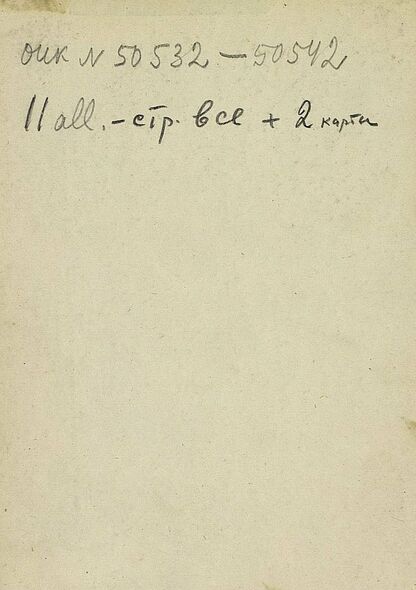 оик N 50532 — 50542
11 all. – стр. все + 2 карты